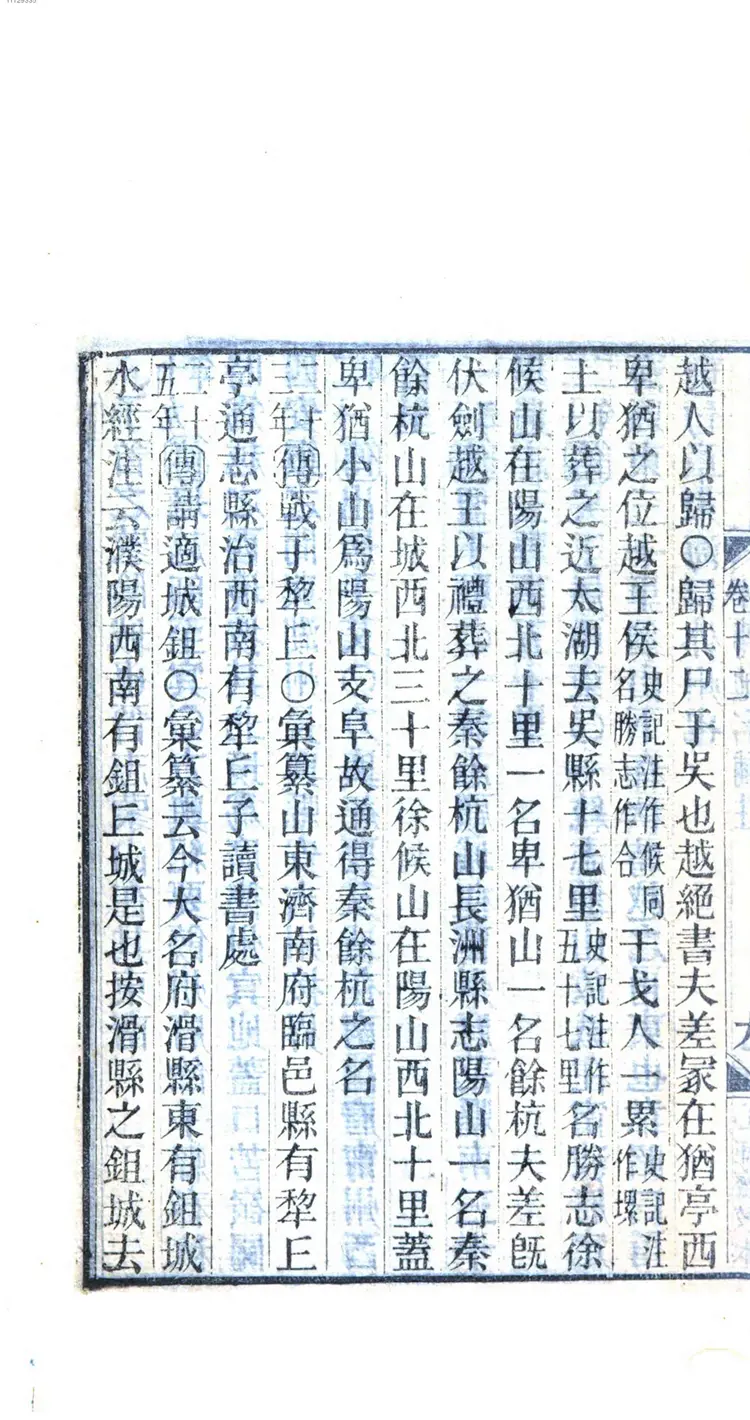 11129335
卷十
九
越人以歸〇歸其尸于吳也越絕書夫差冢在猶亭西
卑猶之位越王侯史記注作候同名勝志作合干戈人一累史記注作堁
土以葬之近太湖去吳縣十七里史記注作五十七里名勝志徐
候山在陽山西北十里一名卑猶山一名餘杭夫差旣
伏劍越王以禮葬之秦餘杭山長洲縣志陽山一名秦
餘杭山在城西北三十里徐候山在陽山西北十里蓋
卑猶小山爲陽山支阜故通得秦餘杭之名
二十三年傳戰于犂𠀉〇彙纂山東濟南府臨邑縣有犂𠀉
亭通志縣治西南有犂𠀉子讀書處
二十五年傳請適城鉏〇彙纂云今大名府滑縣東有鉏城
水經注云濮陽西南有鉏𠀉城是也按滑縣之鉏城去